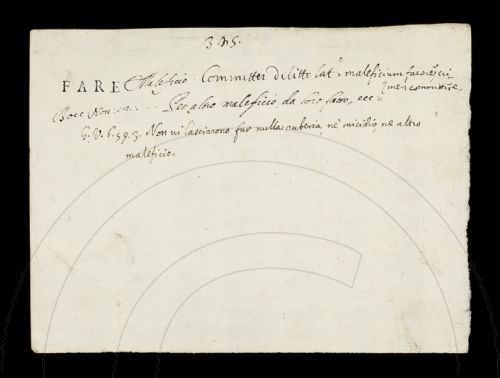 345.
FARE Maleficio. Committer delitto lat. maleficium facere, cri
men committere,
Bocc. Nov. 12. .. Per altro maleficio, da loro fatto, ecc.
G. V. 6. 59. 3. Non vi lasciarono far nulla ruberia, nè micidio, ne altro
maleficio.